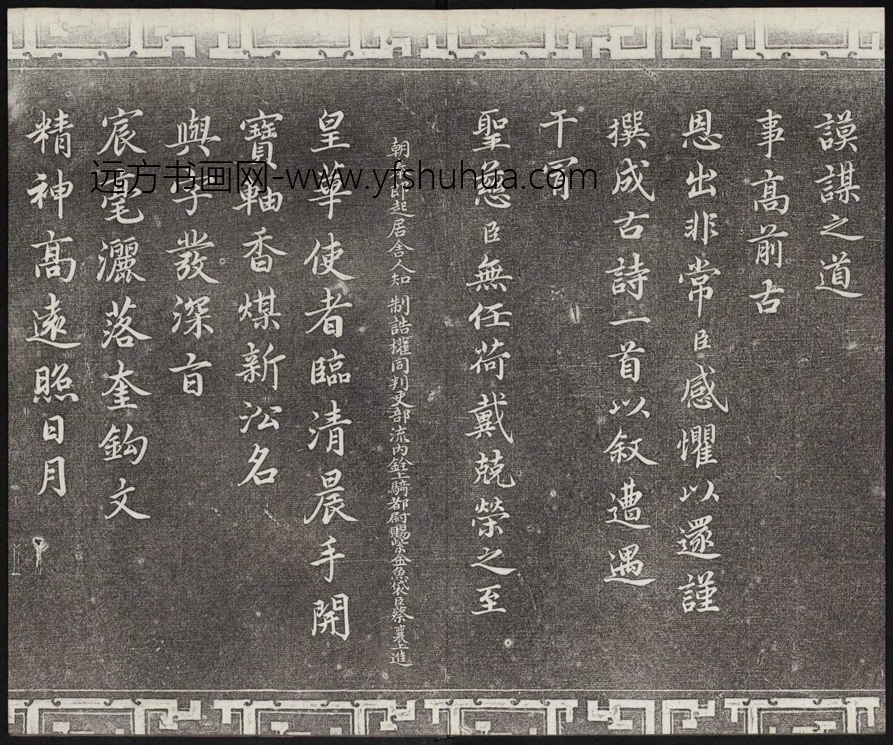 謨謀之道
事高前古
恩出非常臣感懼以還謹
撰成古詩一首以叙遭遇
干冒
聖慈臣無任荷戴兢榮之至
朝奉郎起居舍人知 制誥權同判吏部流内銓上騎都尉賜紫金魚袋臣蔡襄上進
皇華使者臨清晨手開
寶軸香煤新沿名
與字發深旨
宸毫灑落奎鈎文
精神高遠照日月
远方书画网-www.yfshuhua.com